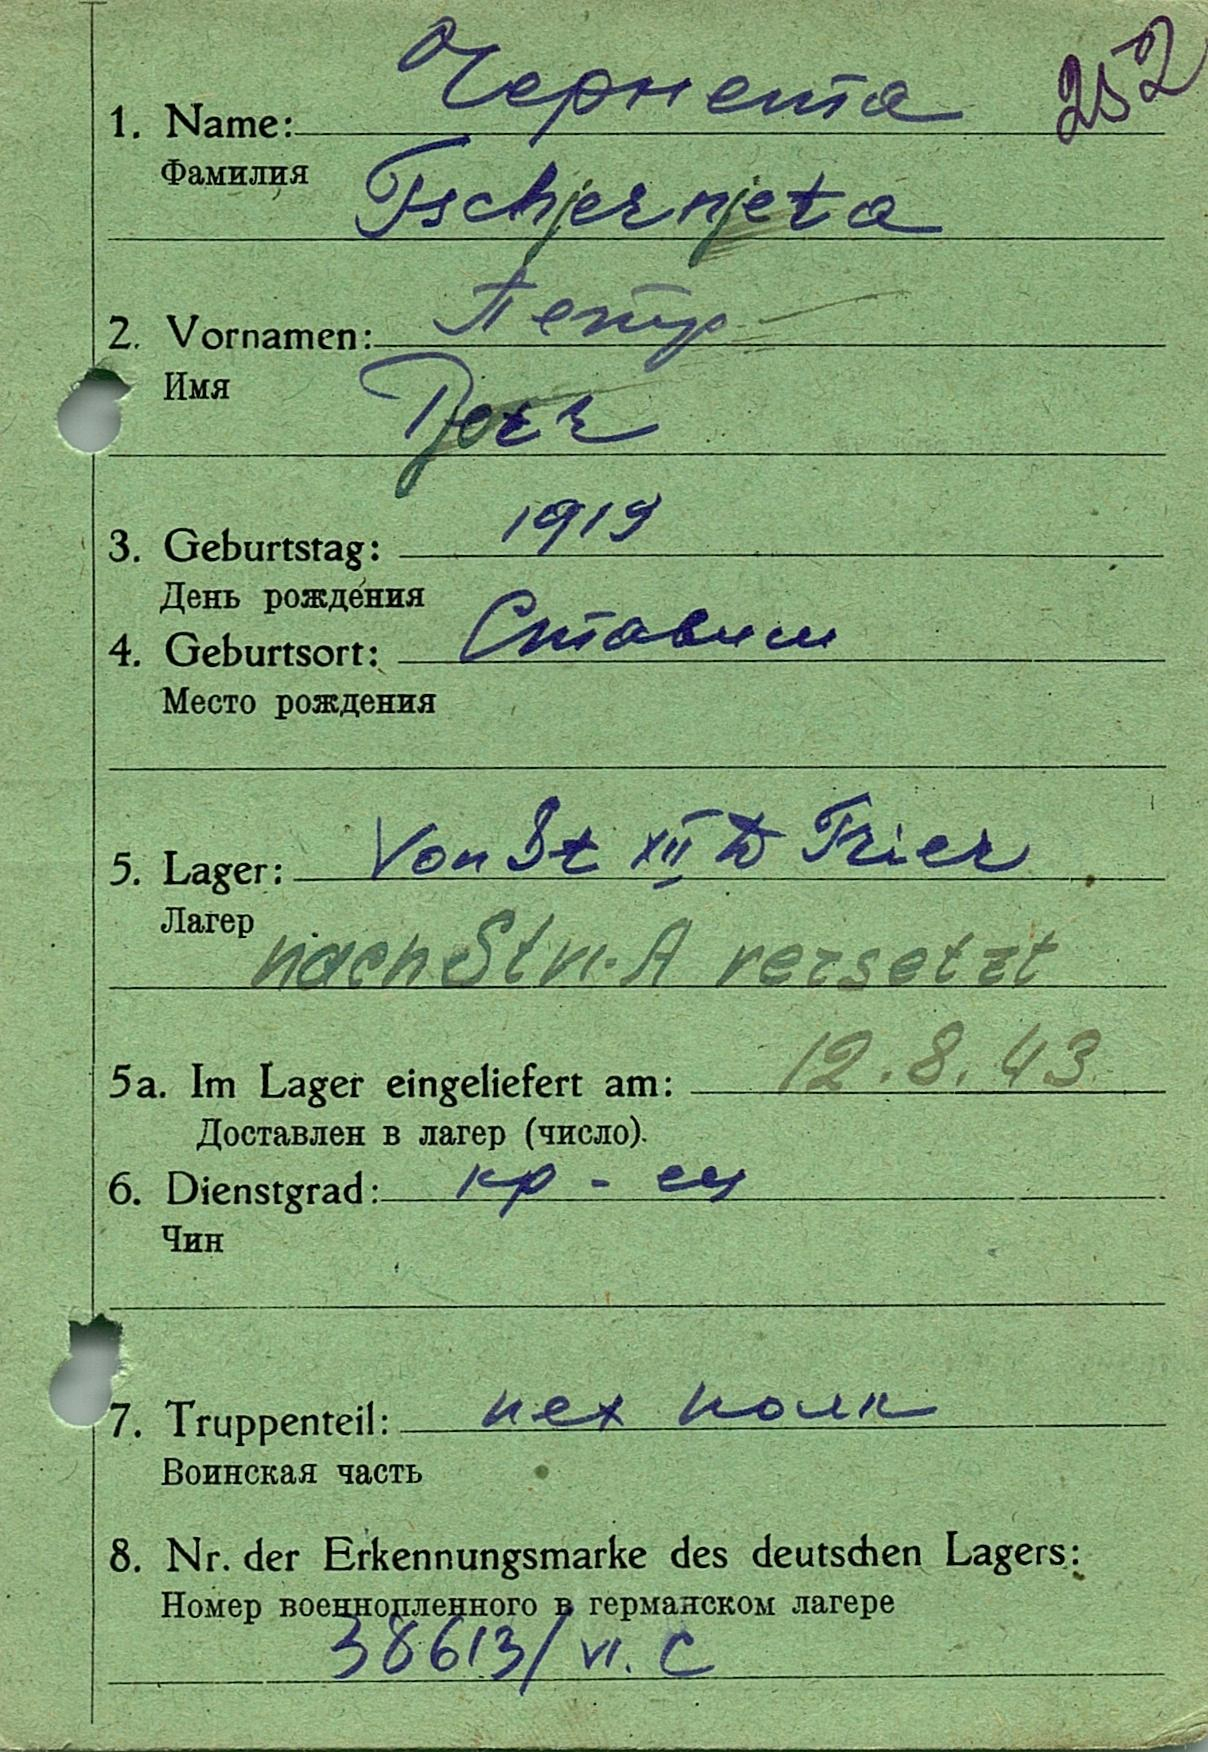 252
Чернета
1. Name:
Фамилия
Tschjernjeta
Петр
2. Vornamen:
Имя
1919
3. Geburtstag:
День рождения
Ставищ
4. Geburtsort:
Место рождения
5. Lager: Von St XII D Trier
Лагер
nach St VI.A versetzt
5a. Im Lager eingeliefert am: 12.8.43
Доставлен в лагер (число).
6. Dienstgrad: кр-ец
Чин
7. Truppenteil: пех полк
Воинская часть
8. Nr. der Erkennungsmarke des deutschen Lagers:
Номер военнопленного в германском лагере
38613/VI.C